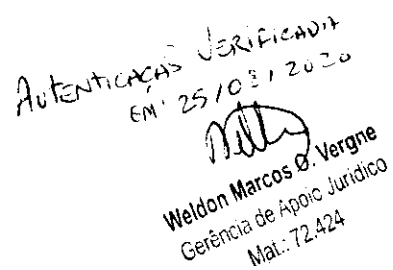 AUTENTICAÇÃO VERIFICADA
EM: 25/03/2020
Weldon Marcos O. Vergne
Gerência de Apoio Jurídico
Mat.: 72.424